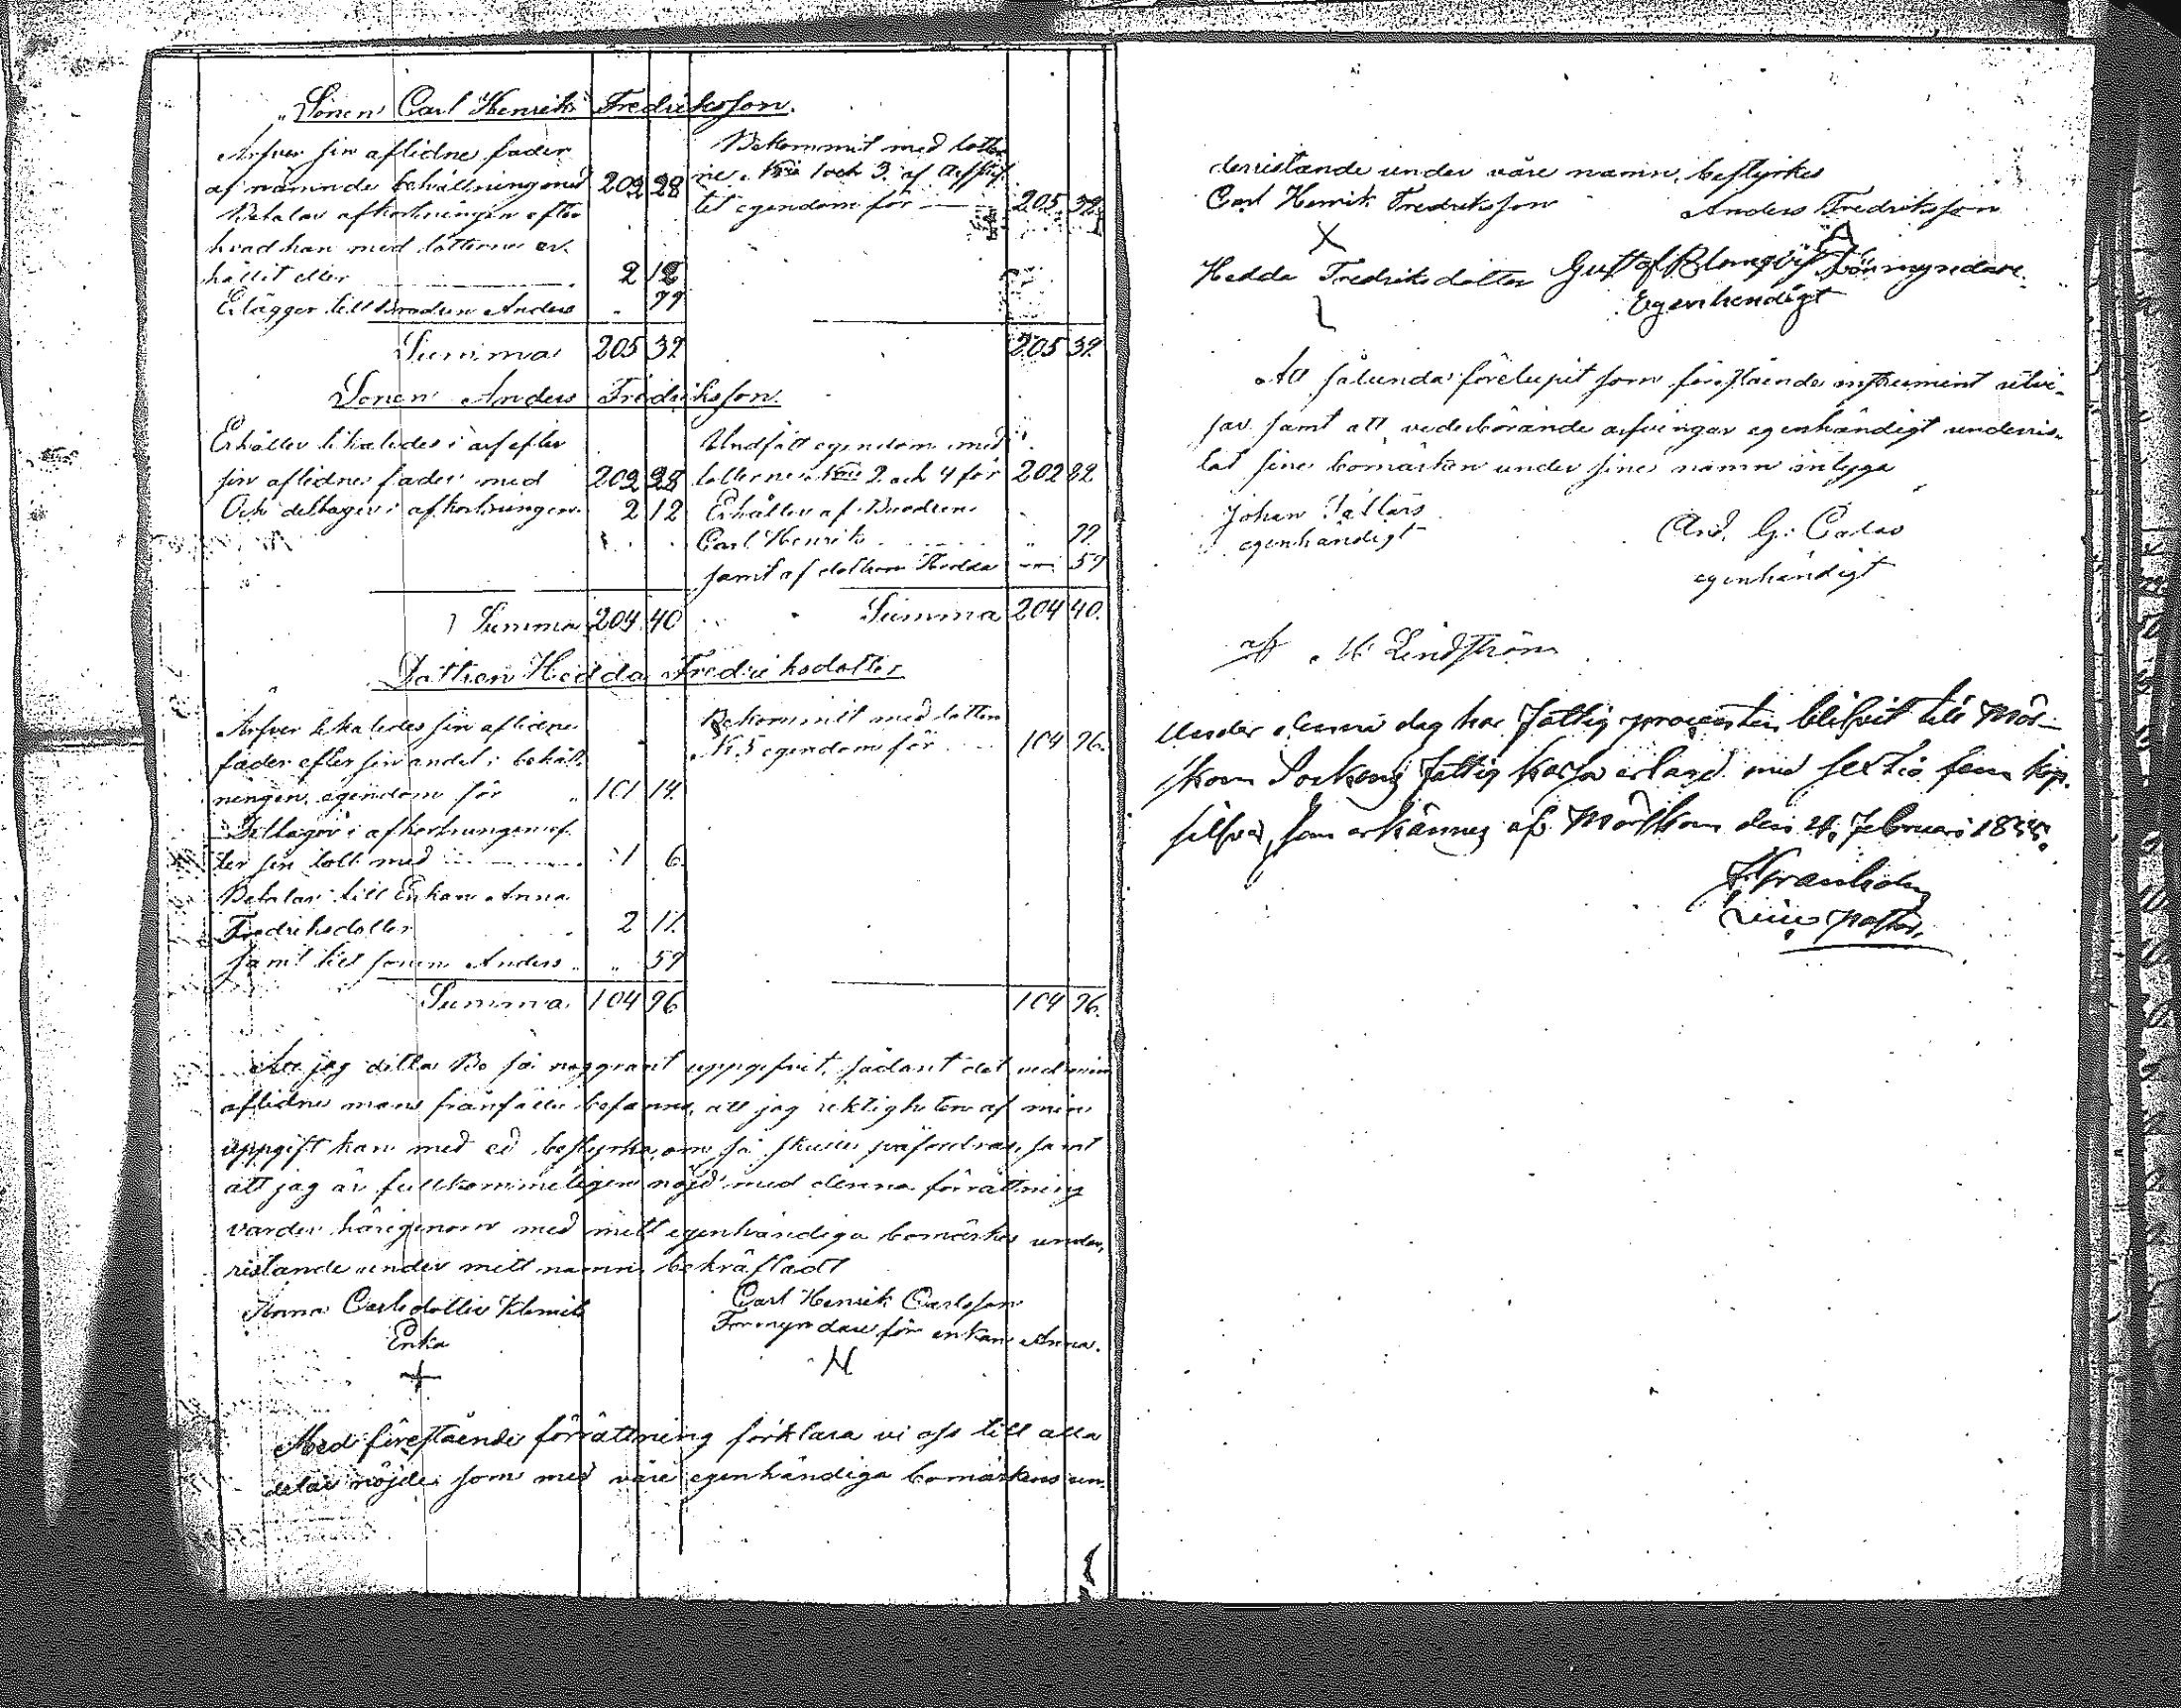 Sonen Carl Henrik Fredriksson.
Ärfver sin aflidne fader
af nämnde behållning med 202 28
Betalar afkortningen efter
hvad han med lotterne er-
hållit eller 2 12
Erlägger till Brodren Anders " 77
Summa 205 32
Bekommit med lotter
ne N:ris 1 och 3 af arfskif
tet egendom för 205 32
205 32
Sonen Anders Fredriksson.
Erhåller likaledes i arf efter
sin aflidne fader med 202 28
Och deltager i afkortningen 2 12
Summa 204 40
Undfått egendom med
lotterne N:ris 2 och 4 för 202 82
Erhåller af Brodren
Carl Henrik " 77
samt af dottren Hedda 57
Summa 204 40.
Dottren Hedda Fredriksdotter
Ärfver likaledes sin aflidne
fader efter sin andel i behåll-
ningen egendom för 101 14
Deltager i afkortningen ef-
ter sin lott med 1 6
Betalar till Enkan Anna
Fredriksdotter 2 17.
samt till sonen Anders " 57
Summa 104 96
Bekommit med lotten
N. 5 egendom för 104 96.
104 96.
Att jag detta Bo så noggrant uppgifvit, sådant det ved min
aflidne mans frånfälle befanns, att jag riktigheten af min
uppgift kan med ed bestyrka, om så skulle påfordras, samt
att jag är fullkommeligen nöjd med denna förrättning
varder härigenom med mitt egenhändiga bomärkes under-
ristande under mitt namn bekräftadt
Anna Carlsdotter Klemets
Enka
Carl Henrik Carlsson
Formyndare för enkan Anna.
Med förestående förrättning förklara vi oss till alla
delar nöjde som med våre egenhändiga bomärkens un-
derristande under våre namn, bestyrkes
Carl Henrik Fredriksson Anders Fredriksson
X
Hedda Fredriksdotter Gustaf Blomqvist Förmyndare
Egenhendigt
Att sålunda förelupit som förestående instrument utvi-
sar samt att vederbörande arfvingar egenhändigt underris-
tat sine bomärken under sine namn intyga
Johan Pallars
egenhändigt
And. G: Carlas
egenhändigt
M Lindström
Under denne dag har fattig procenten blifvit till Mör-
skom Sockens fattig kassa erlagd med sextio fem kop.
silfver, som erkännes af Mörskom den 21 Februari 1855.
J Granholm